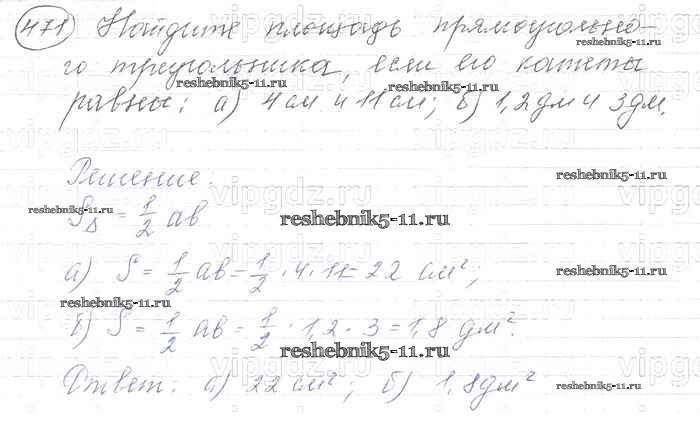 471 Найдите площадь прямоугольно-
го треугольника, если его катеты
равны: а) 4 см и 11 см; б) 1,2 дм и 3 дм.
Решение.
S△ = 1/2 ab
а) S = 1/2 ab = 1/2 · 4 · 11 = 22 см²;
б) S = 1/2 ab = 1/2 · 1,2 · 3 = 1,8 дм².
Ответ: а) 22 см²; б) 1,8 дм²
reshebnik5-11.ru
reshebnik5-11.ru
reshebnik5-11.ru
reshebnik5-11.ru
reshebnik5-11.ru
reshebnik5-11.ru
reshebnik5-11.ru
reshebnik5-11.ru
reshebnik5-11.ru
reshebnik5-11.ru
vipgdz.ru
vipgdz.ru
vipgdz.ru
vipgdz.ru